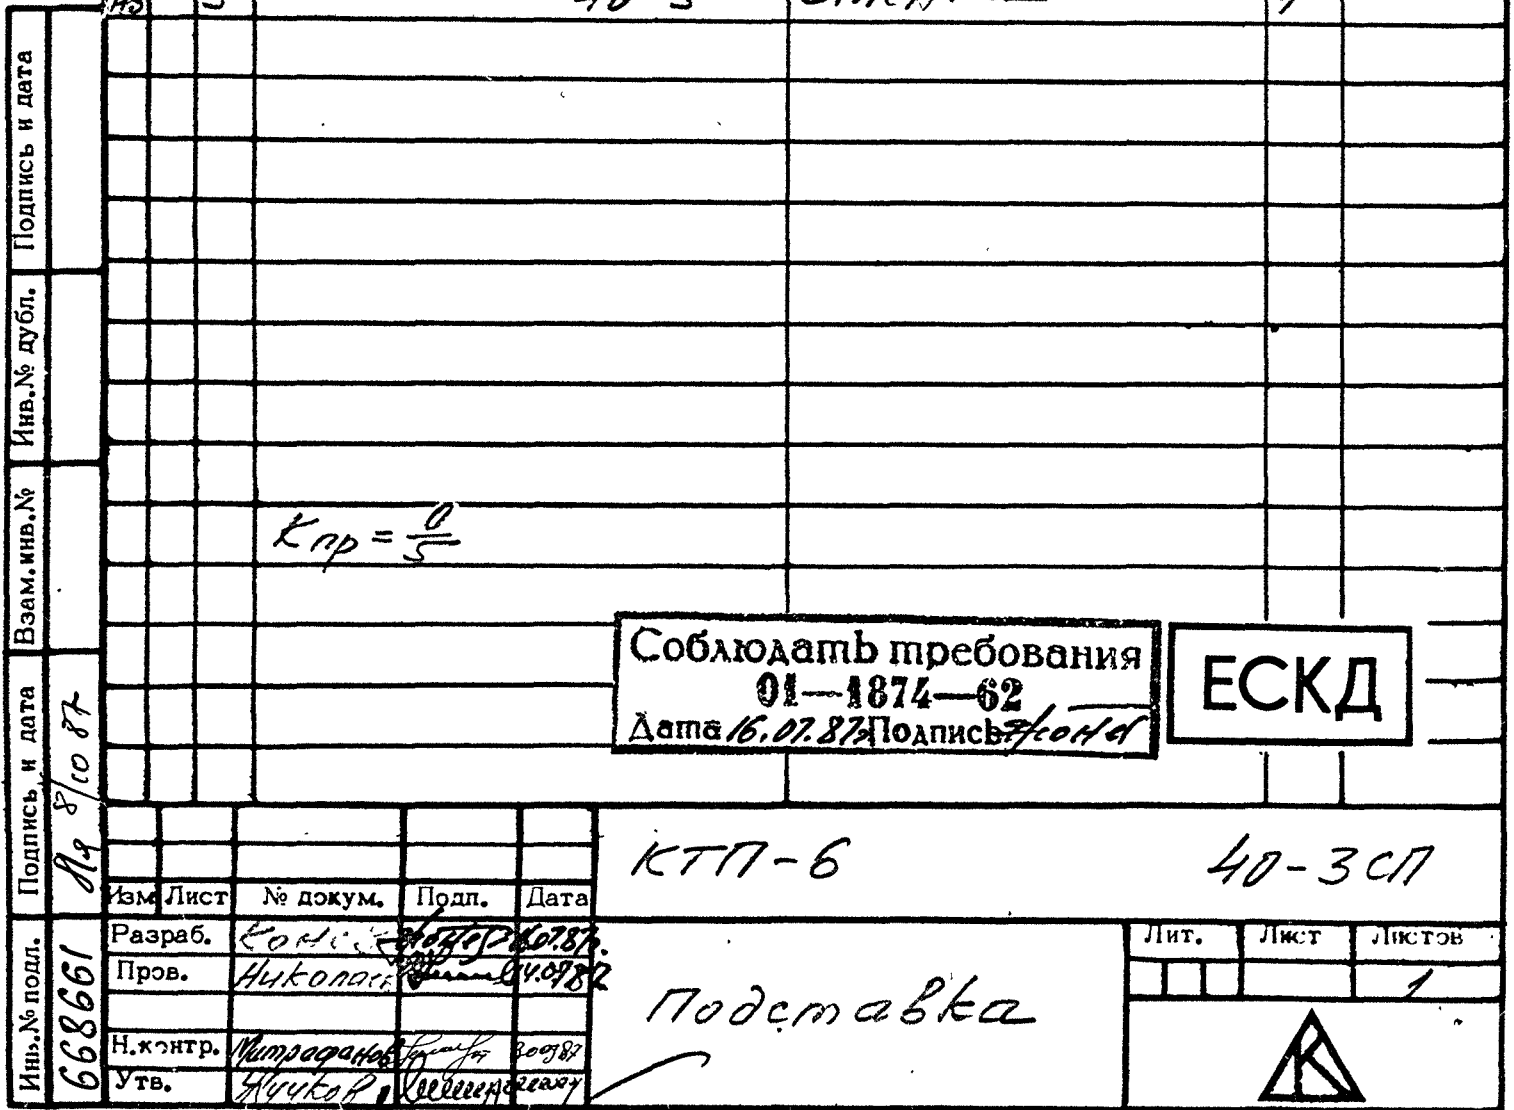 40-3
Подпись и дата
Инв.№ дубл.
Взам.инв.№
Подпись и дата
8/10 87
Инв.№ подл.
668661
Кпр = 0/5
Соблюдать требования
01—1874—62
Дата 16.07.87г Подпись
ЕСКД
КТП-6
40-3 СП
Изм Лист № докум. Подп. Дата
Разраб.
Пров. 14.0787
Н.контр. Митрофанов 300787
Утв. Жучков
Подставка
Лит. Лист Листов
1